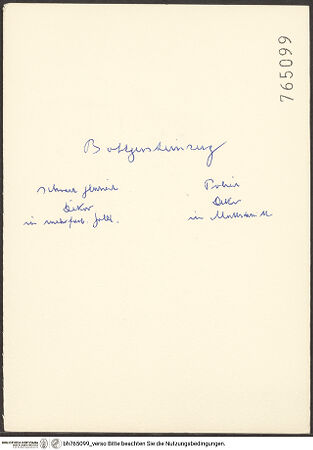 765099
Böttgersteinzeug
schwarz glasiert
Dekor
in mehrfarb. Gold.
Poliert
Dekor
in
bh765099_verso Bitte beachten Sie die Nutzungsbedingungen.